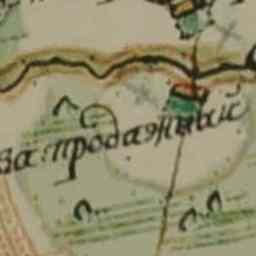 запродажный